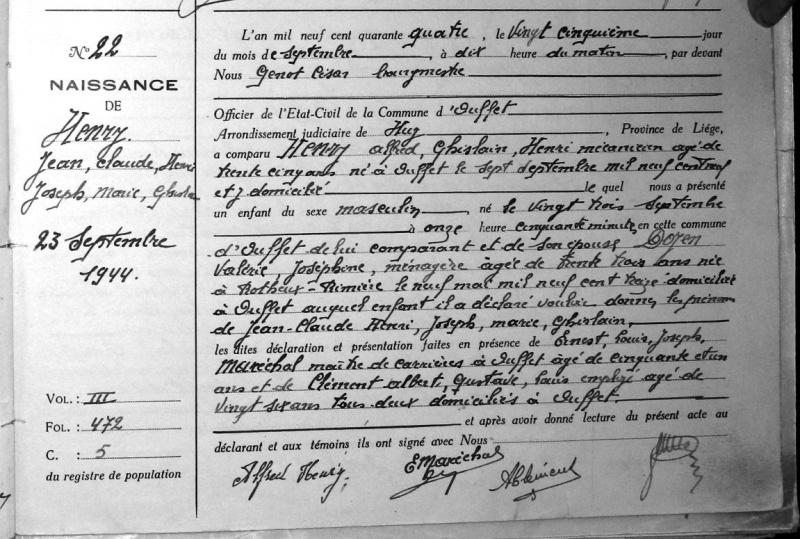 N° 22
NAISSANCE
DE
Henry
Jean, Claude, Henri
Joseph, Marie, Ghislain
23 Septembre
1944.
VOL. : III
FOL. : 472
C. : 5
du registre de population
L'an mil neuf cent quarante quatre, le vingt cinquième jour
du mois de septembre, à dix heure du matin, par devant
Nous Genot César bourgmestre
Officier de l'Etat-Civil de la Commune d'Ouffet
Arrondissement judiciaire de Huy, Province de Liége,
a comparu Henry Alfred, Ghislain, Henri mécanicien agé de
trente cinq ans né à Ouffet le sept septembre mil neuf cent neuf
et y domicilié le quel nous a présenté
un enfant du sexe masculin, né le vingt trois septembre
à onze heure cinquante minutes en cette commune
d'Ouffet de lui comparant et de son épouse Doyen
Valérie, Joséphine, ménagère âgée de trente trois ans née
à Rotheux-Rimière le neuf mai mil neuf cent treize domiciliée
à Ouffet auquel enfant il a déclaré vouloir donner les prénoms
de Jean-Claude Henri, Joseph, Marie, Ghislain,
les dites déclaration et présentation faites en présence de Ernest, Louis, Joseph,
Maréchal maître de carrières à Ouffet âgé de cinquante et un
ans et de Clément Albert, Gustave, Louis employé agé de
vingt six ans tous deux domiciliés à Ouffet.
et après avoir donné lecture du présent acte au
déclarant et aux témoins ils ont signé avec Nous
Alfred Henry.
E Maréchal
A Clément